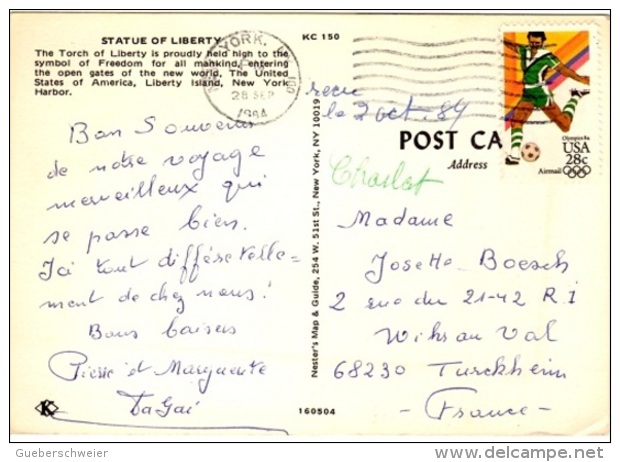 STATUE OF LIBERTY
The Torch of Liberty is proudly held high to the
symbol of Freedom for all mankind, entering
the open gates of the new world. The United
States of America, Liberty Island, New York
Harbor.
KC 150
YORK,
28 SEP
1984
Olympics 84
USA
28c
Airmail
reçu
le 2 oct. 84
POST CA
Address
Charlot
Bon Souvenir
de notre voyage
merveilleux qui
se passe bien.
Ici tout différe telle=
ment de chez nous!
Bons baisers
Pierre et Marguerite
Nester's Map & Guide, 254 W. 51st St., New York, NY 10019
Madame
Josette Boesch
2 rue du 21-42 R.I
Wihr au Val
68230 Turckheim
- France -
K
160504
Gueberschweier
www.delcampe.net